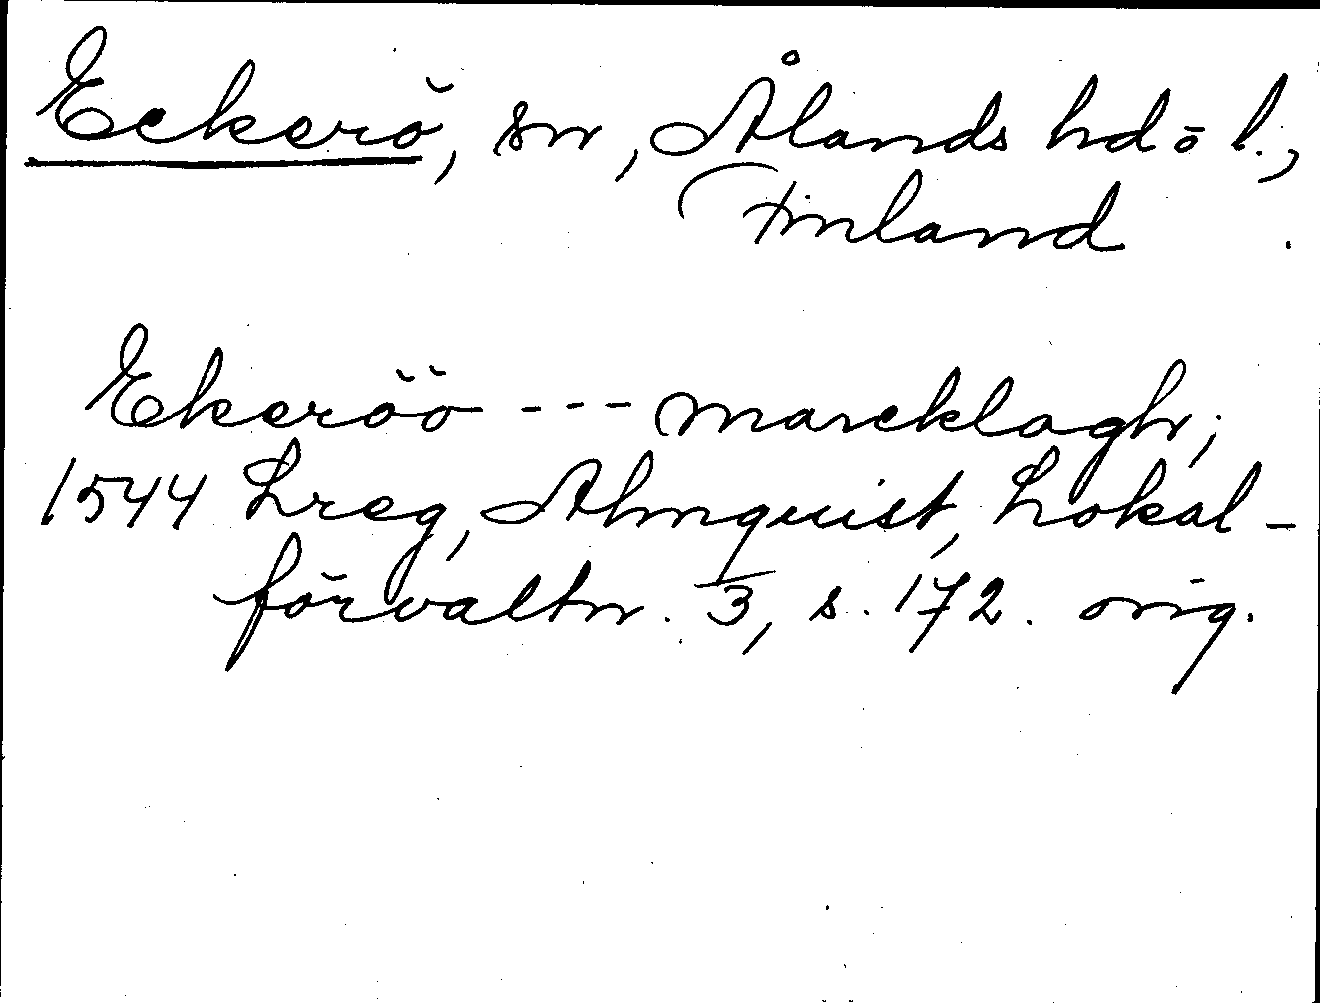 Eckerö, sn, Ålands hd o l.,
Finland
Ekeröö --- marcklagh;
1544 Lreg, Almquist, Lokal-
förvaltn. 3, s. 172. orig.